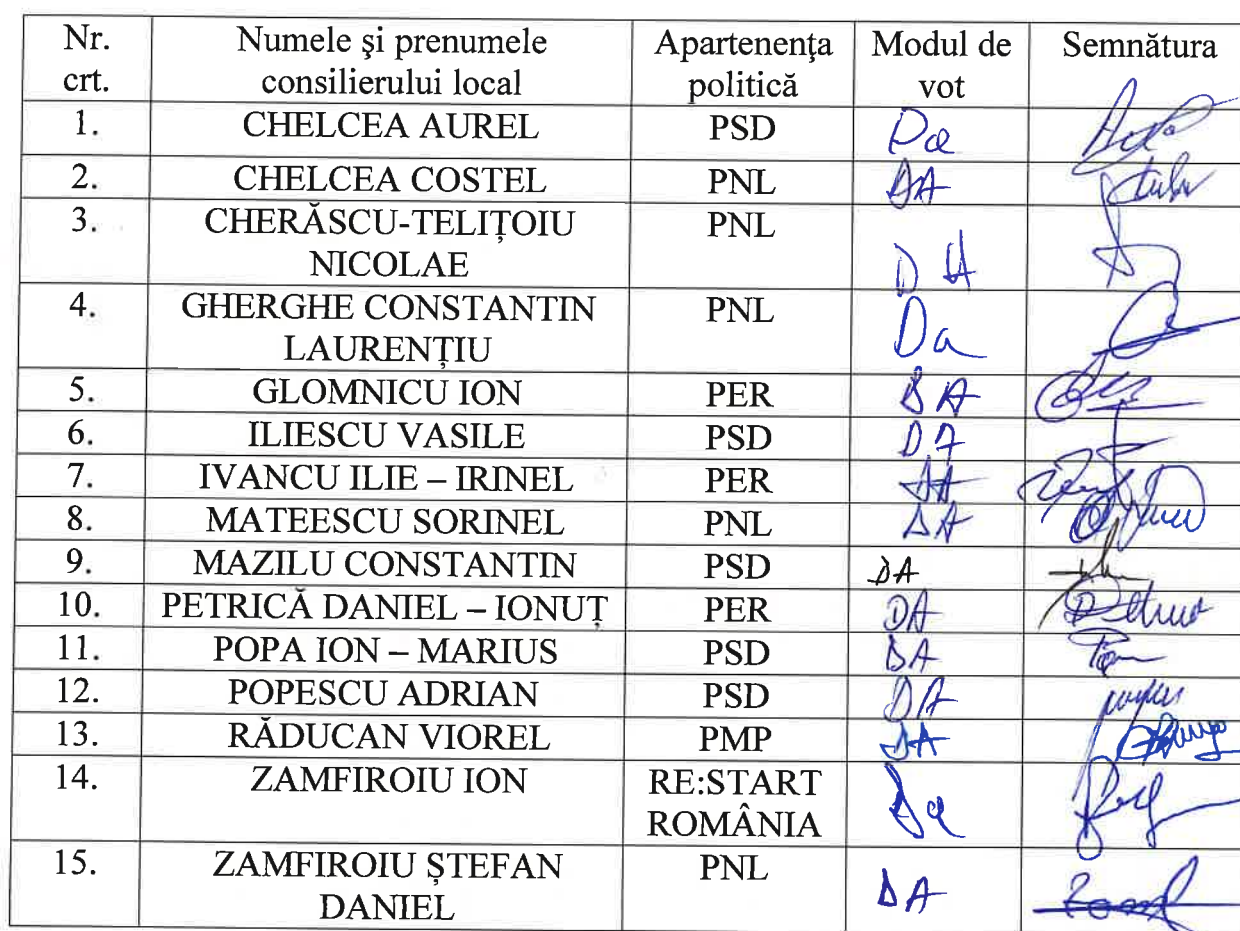 Nr. crt. Numele şi prenumele consilierului local Apartenenţa politică Modul de vot Semnătura
1. CHELCEA AUREL PSD Da
2. CHELCEA COSTEL PNL DA
3. CHERĂSCU-TELIȚOIU NICOLAE PNL DA
4. GHERGHE CONSTANTIN LAURENȚIU PNL Da
5. GLOMNICU ION PER DA
6. ILIESCU VASILE PSD DA
7. IVANCU ILIE – IRINEL PER DA
8. MATEESCU SORINEL PNL DA
9. MAZILU CONSTANTIN PSD DA
10. PETRICĂ DANIEL – IONUȚ PER DA
11. POPA ION – MARIUS PSD DA
12. POPESCU ADRIAN PSD DA
13. RĂDUCAN VIOREL PMP DA
14. ZAMFIROIU ION RE:START ROMÂNIA Da
15. ZAMFIROIU ȘTEFAN DANIEL PNL DA